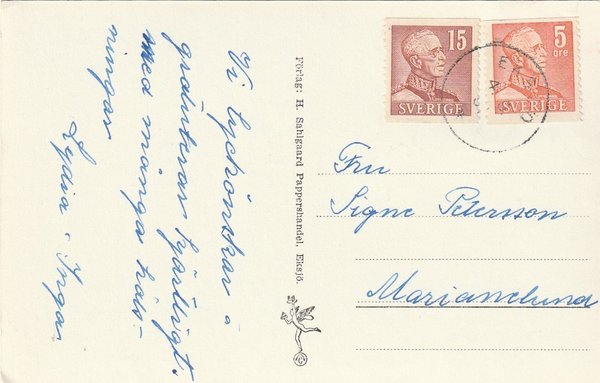 Vi lyckönskar o
gratulerar hjärtligt.
med många häls-
ningar
Lydia o Ingar
Förlag: H. Sahlgaard Pappershandel, Eksjö.
15
SVERIGE
5
öre
SVERIGE
Fru
Signe Petersson
Mariannelund